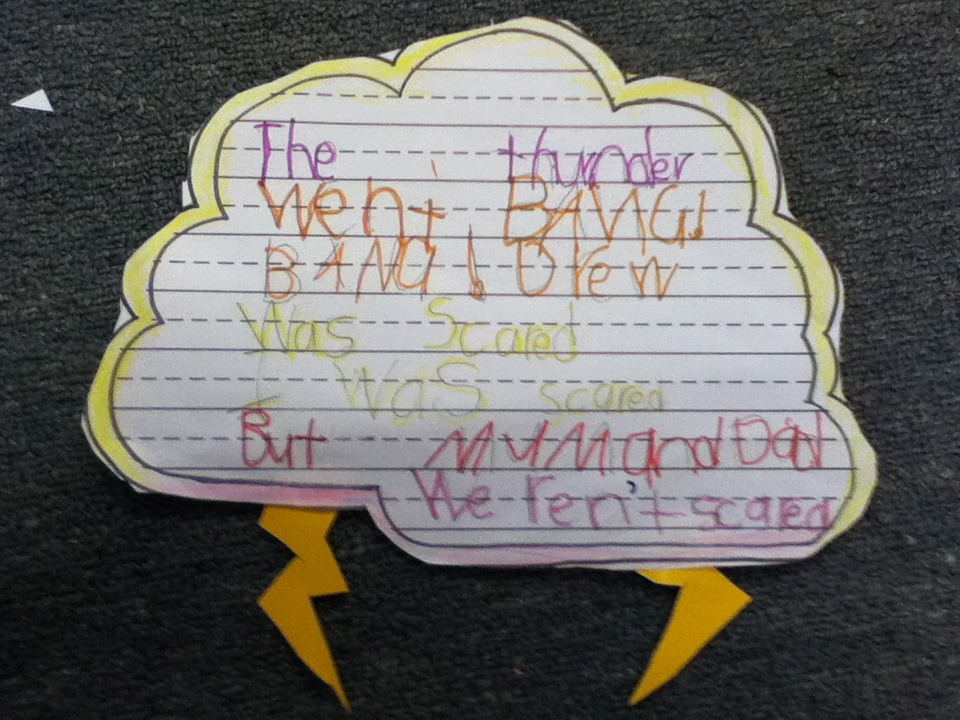 The thunder
Went BANG!
BANG! Drew
Was Scared
I Was scared
But MUM and Dad
Weren't scared